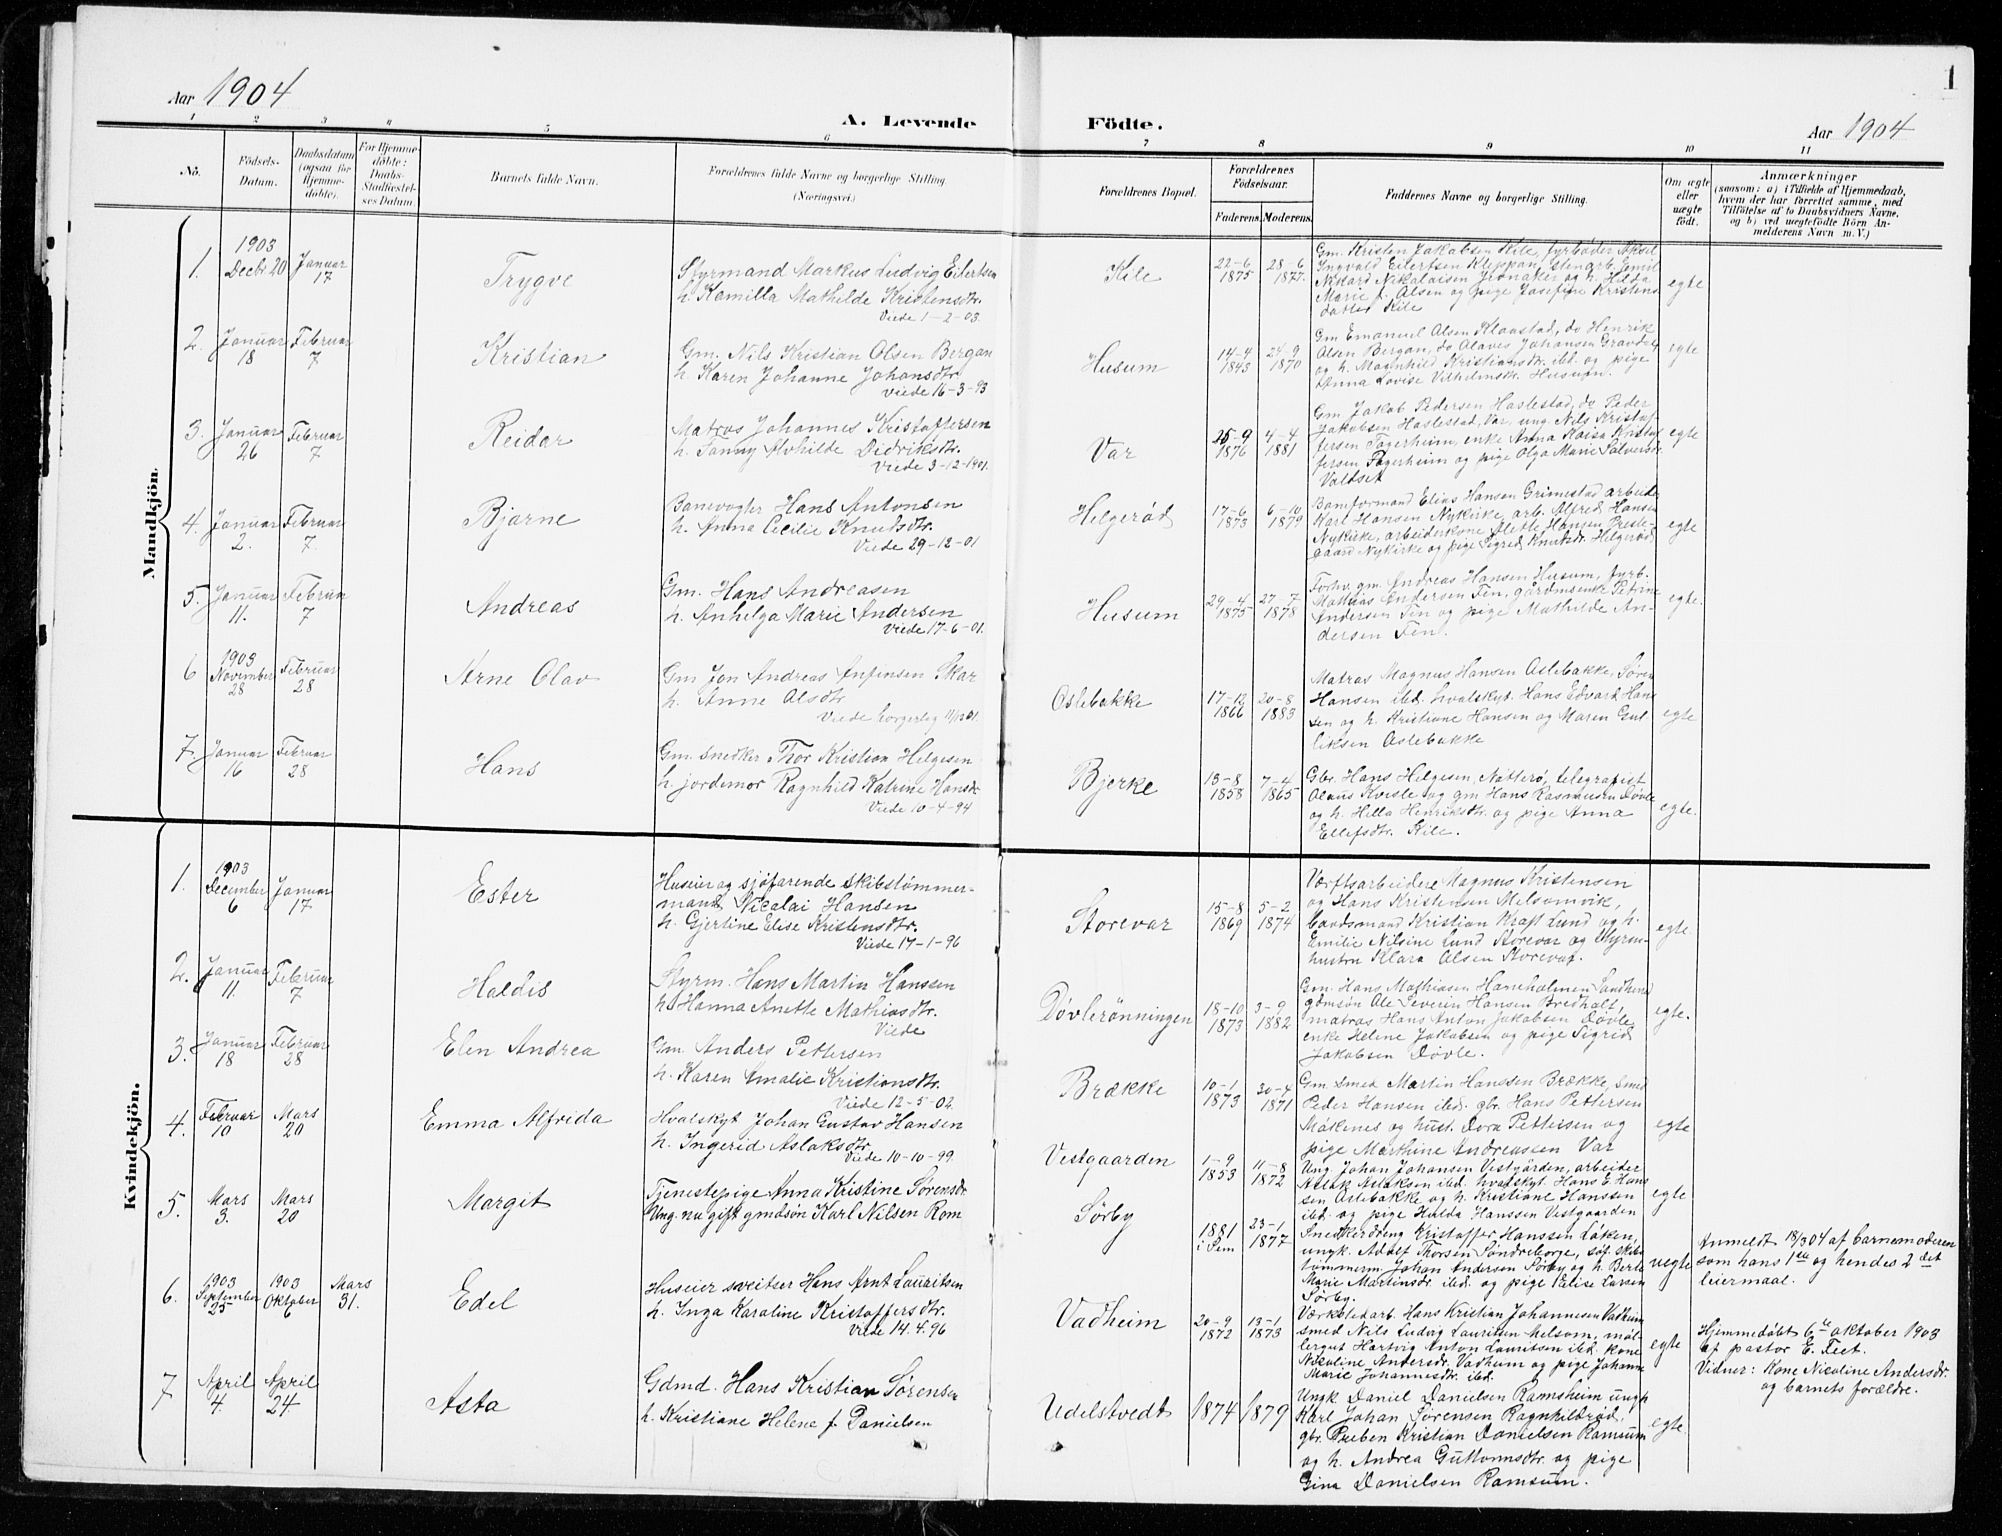 1
Aar 1904
A. Levende Fødte.
Aar 1904
1 2 3 4 5 6 7 8 9 10 11
No.
Fødsels-
Datum.
Daabsdatum
(ogsaa for
Hjemme-
døbte).
For Hjemme-
døbte:
Daabs-
Stadfæstel-
ses Datum.
Barnets fulde Navn.
Forældrenes fulde Navne og borgerlige Stilling
(Næringsvei.)
Forældrenes Bopæl.
Forældrenes
Fødselsaar.
Faderens. Moderens.
Faddernes Navne og borgerlige Stilling.
Om ægte
eller
uægte
født.
Anmærkninger
(saasom: a) i Tilfælde af Hjemmedaab,
hvem der har forrettet samme, med
Tilføielse af to Daabsvidners Navne,
og b) ved uægtefødte Børn An-
melderens Navn m. V.)
Mandkjøn.
1.
1903
Decbr. 20
Januar
17
Trygve
Styrmand Markus Ludvig Eilertsen
h. Kamilla Mathilde Kristensdtr.
Viede 1-2-03.
Kile
22-6
1875
28-6
1877.
Gm. Kristen Jakobsen Kile, fyrbøder Aksel
Ingvald Eilertsen Kleppan, stenarb. Emil
Rikard Nikolaisen og h. Hilda
Marie f. Olsen og pige Josefine Kristens
datter Kile
egte
2.
Januar
18
Februar
7
Kristian
Gm. Nils Kristian Olsen Bergan
h. Karen Johanne Johansdtr.
Viede 16-3-93
Husum
14-4
1843
24-9
1870
Gm Emanuel Olsen Klaastad, do Henrik
Olsen Bergan, do Olaves Johansen Gravdal,
og h. Magnhild Kristiansdtr. ibd. og pige
Anna Lovise Vilhelmsdtr. Husum.
egte
3.
Januar
26
Februar
7
Reidar
Matros Johannes Kristoffersen
h. Fanny Alvhilde Didriksdtr.
Viede 3-12-1901.
Var
25-9
1876
4-4
1881
Gm Jakob Pedersen Haslestad, do Peder
Jakobsen Haslestad, Var, ung. Nils Kristof-
fersen Fagerheim, enke Anna Kaisa Kristof
fersen Fagerheim og pige Olga Marie Salversdtr.
Valdset
egte
4.
Januar
2.
Februar
7.
Bjarne
Banevogter Hans Antonsen
h. Anna Cecilie Knudsdtr.
Viede 29-12-01
Helgerød
17-6
1873
6-10
1879
Banformand Elias Hansen Grimestad arbeider
Karl Hansen Nykirke, arb. Alfred Hansen
Nykirke, arbeiderkone Alette Hansen Preste-
gaard Nykirke og pige Sigrid Knutsdr. Helgerød
egte
5.
Januar
11.
Februar
7
Andreas
Gm. Hans Andreasen
h. Anhelga Marie Andersen
Viede 17-6-01.
Husum
29-4
1875
27-7
1878
Forhv. gm. Andreas Hansen Husum, fyrb.
Mathias Andersen Fen, gårdmsenke Petrine
Andersen Fen og pige Mathilde An-
dersen Fen.
egte.
6
1903
November
28
Februar
28
Arne Olav
Gm Jon Andreas Anfinsen Skar
h. Anne Olsdtr
Viede borgerlig 11/12 01.
Oslebakke
17-12
1866
20-8
1883
Matros Magnus Hansen Oslebakke, Søren
Hansen ibd. hvalskyt. Hans Edvard Han
sen og h. Kristiane Hansen og Maren Gul
liksen Oslebakke
egte
7.
Januar
16
Februar
28
Hans
Gm. snedker Thor Kristian Helgesen
h. jordemor Ragnhild Katrine Hansdr.
Viede 10-4-94
Bjerke
13-8
1858
7-4
1865
Gbr. Hans Helgesen, Nøtterø, telegrafist
Olaus Kvisle og gm Hans Rasmusen Døvle
og h. Hella Henriksdtr. og pige Anna
Ellefsdtr. Kile.
egte.
Kvindekjøn.
1.
1903
December
6
Januar
17
Ester
Huseier og sjøfarende skibstømmer-
mand Nicolai Hansen
h. Gjertine Elise Kristensdtr.
Viede 17-1-96
Storevar
15-8
1869
5-2
1874
Værftsarbeidere Magnus Kristensen
og Hans Kristensen Melsomvik,
baadsmand Kristian Kraft Lund og h.
Emilie Nilsine Lund Storevar og styrm-
hustru Klara Olsen Storevar.
egte.
2.
Januar
11.
Februar
7
Haldis
Styrm. Hans Martin Hanssen
h. Hanna Anette Mathiasdtr.
Viede
Døvlerønningen
18-10
1873
3-9
1882
Gm. Hans Mathiasen Hamholmen Sandhem
gdmsøn Ole Severin Hansen Bredholt,
matros Hans Anton Jakobsen Døvle,
enke Helene Jakobsen og pige Sigrid
Jakobsen Døvle.
egte.
3.
Januar
18
Februar
28
Elen Andrea
Gm. Anders Pettersen
h. Karen Amalie Kristiansdtr.
Viede 12-5-02.
Brække
10-1
1873
30-4
1871
Gm. smed Martin Hanssen Brække, smed
Peder Hansen ibd. gbr. Hans Pettersen
Måkenes og hust. Dora Pettersen og
pige Marthine Andreassen Var
egte
4.
Februar
10
Mars
20
Emma Alfrida
Hvalskyt Johan Gustav Hansen
h. Ingerid Aslaksdtr.
Viede 10-10-99.
Vestgaarden
1-9
1853
11-8
1872
Ung. Johan Johansen Vestgården, arbeider
Aslak Aslaksen ibd. hvalskyt. Hans E. Hans
sen Oslebakke og h. Kristiane Hanssen
ibd. og pige Hulda Hanssen Vestgaarden
egte
5.
Mars
3.
Mars
20
Margit
Tjenestepige Anna Kristine Sørensdr
Ung. nu gift gmdsøn Karl Nilsen Rom
Sørby
1881
i Sem
23-1
1877
Snedkerdreng Kristoffer Hanssen Løken,
ungk. Adolf Thorsen Søndreborge, søf. skibs
tømmerm. Johan Andersen Sørby og h. Berte
Marie Martinsdr. ibd. og pige Elise Larsen
Sørby.
uegte
Anmeldt 18/3 04 af barnemoderen
som hans 1ste og hendes 2det
leiermaal.
6.
1903
September
25
1903
Oktober
6
Mars
31.
Edel
Huseier sveitser Hans Arnt Lauritsen
h. Inga Karoline Kristoffersdtr.
Viede 14.4.96
Vadheim
20-9
1872
13-1
1873
Værkstedarb. Hans Kristian Johannesen Vadheim
smed Nils Ludvig Lauritsen Melsom, møl-
lergut Hartvig Anton Lauritsen ibd. kone
Nicoline Andersdr. Vadheim og pige Johanne
Marie Johannesdtr. ibd.
egte
Hjemmedøbt 6te oktober 1903
af pastor E. Feet.
Vidner: Kone Nicoline Andersdr.
og barnets forældre.
7
April
4.
April
24
Asta
Gdmd. Hans Kristian Sørensen
h. Kristiane Helene f. Danielsen
Udelstvedt
1874
1879
Ungk Daniel Danielsen Ramsheim ungk
Karl Johan Sørensen Ragnhildrød,
gbr. Preben Kristian Danielsen Ramsum
og h. Andrea Guttormsdtr. og pige
Gina Danielsen Ramsum.
egte.